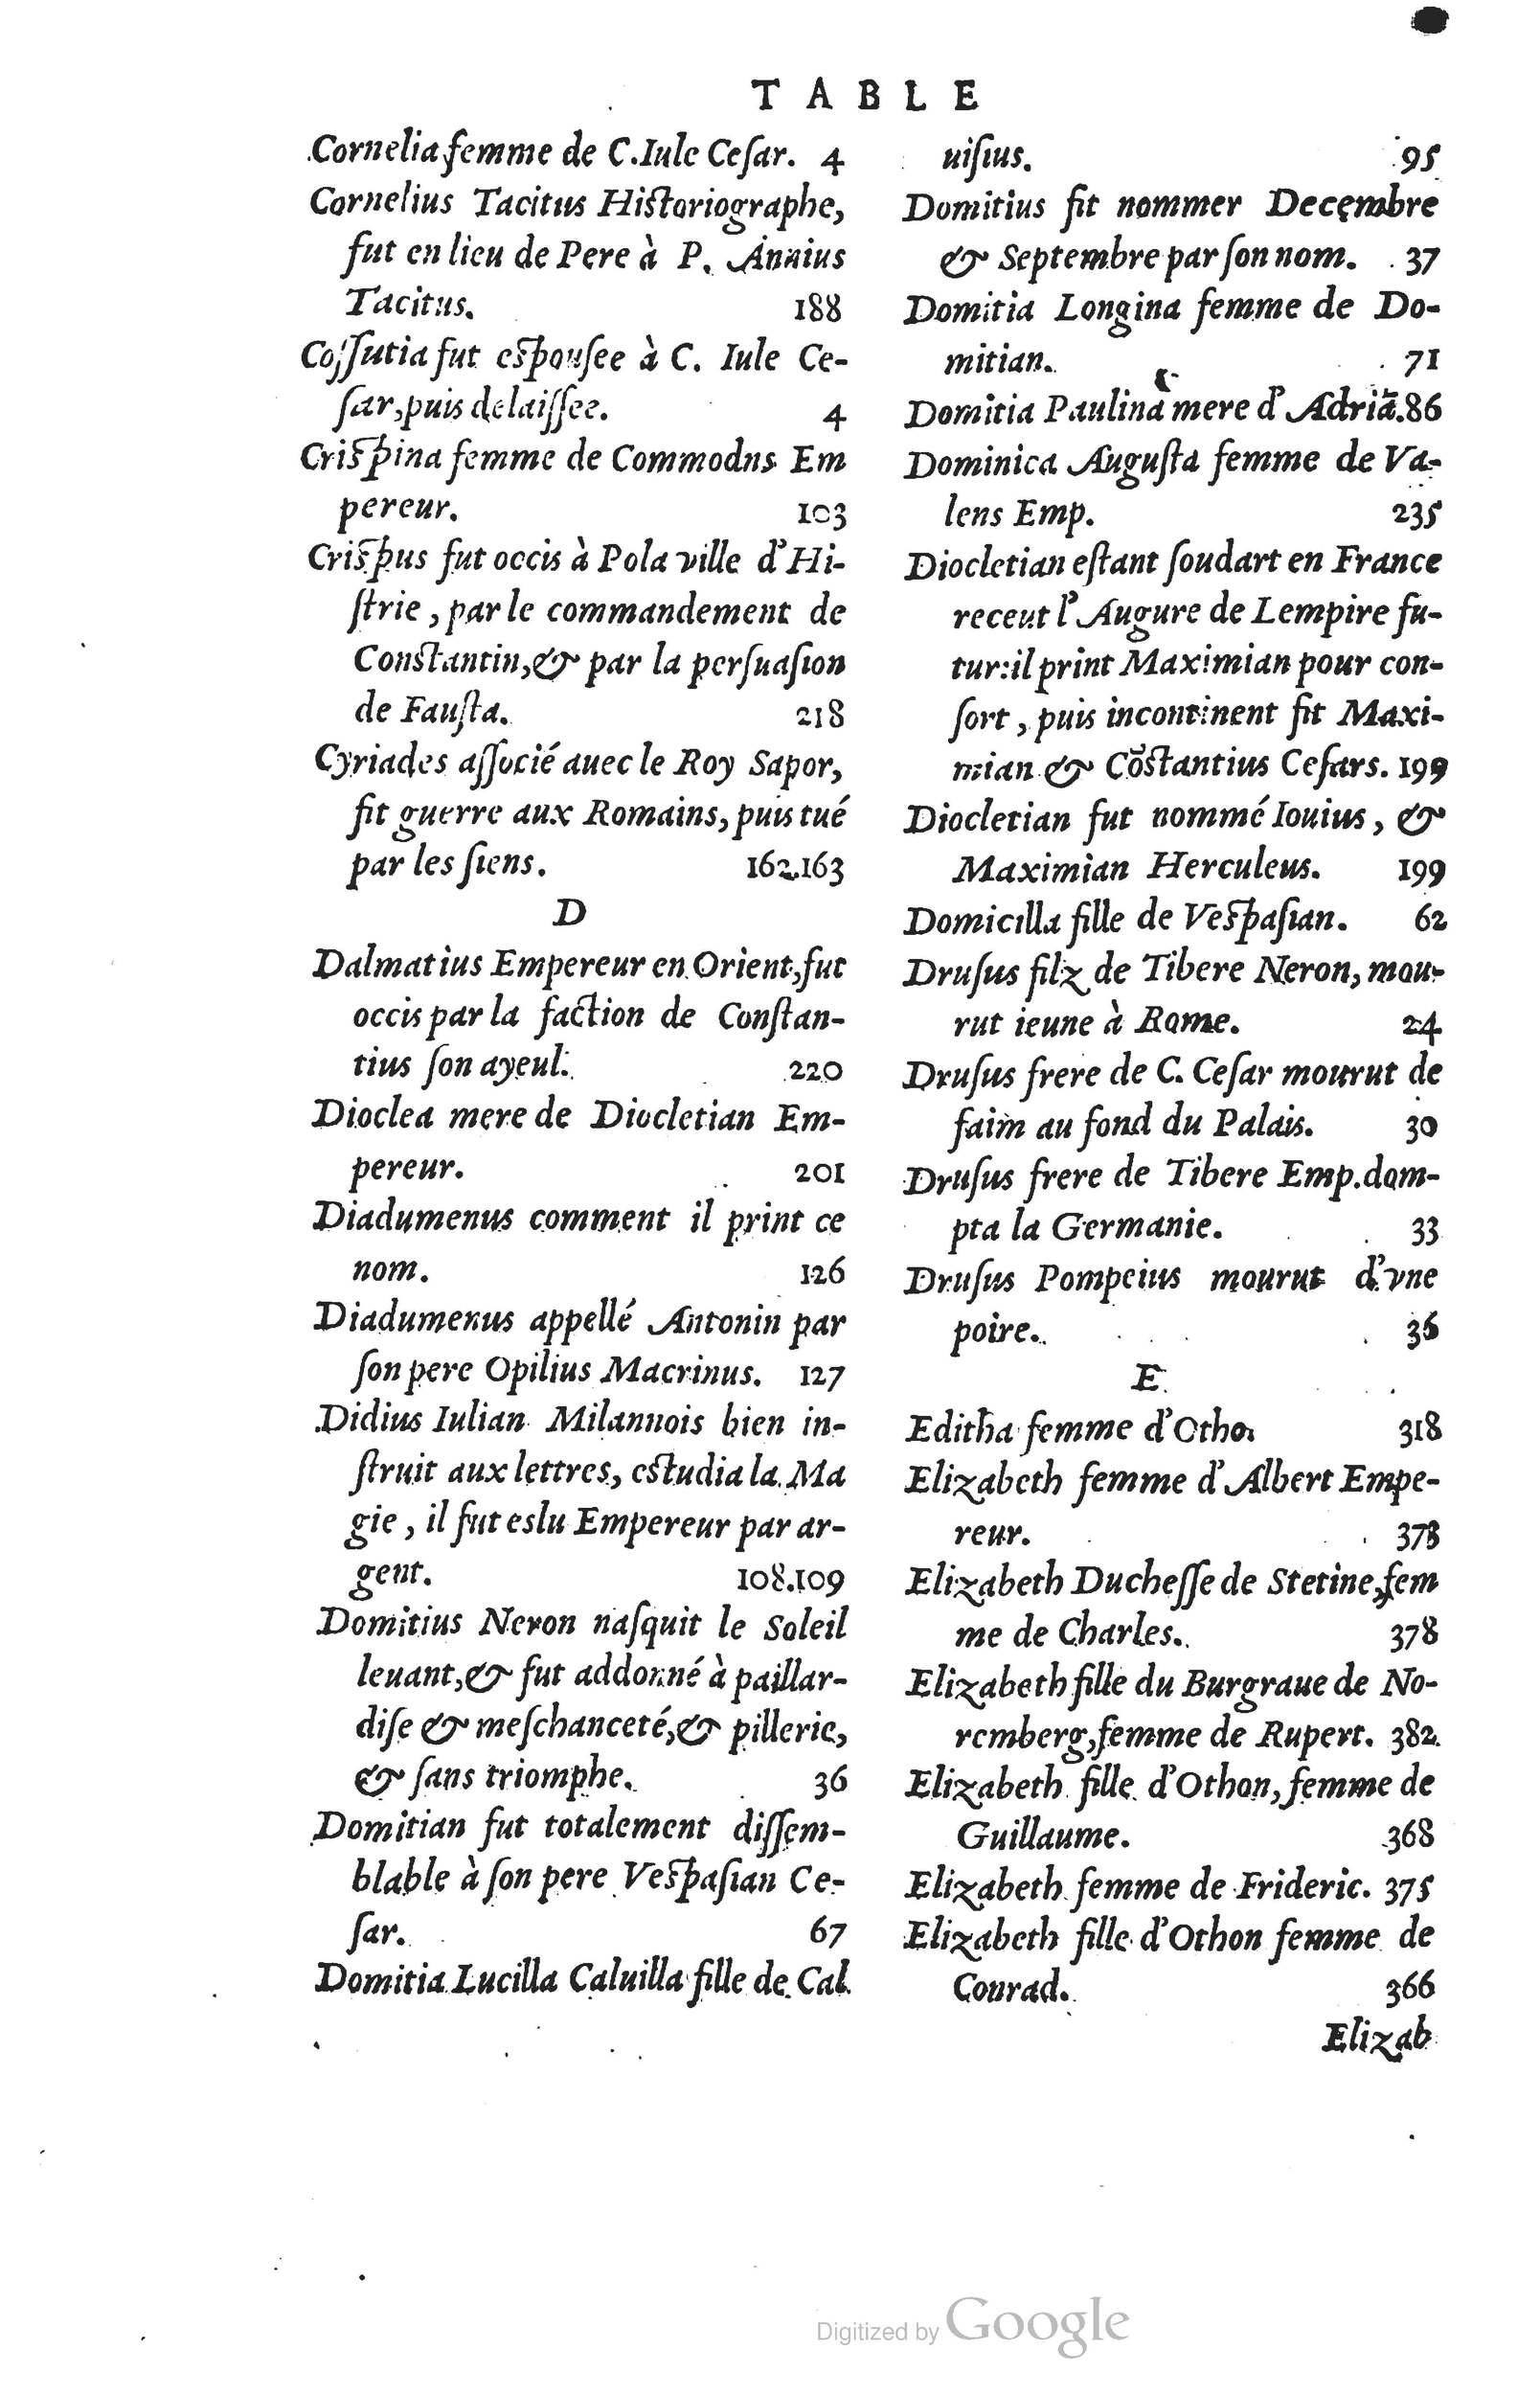 TABLE
Cornelia femme de C. Iule Ceſar. 4
Cornelius Tacitus Historiographe,
fut en lieu de Pere à P. Annius
Tacitus. 188
Coſſutia fut espouſee à C. Iule Ce-
ſar, puis delaiſſee. 4
Crispina femme de Commodus Em
pereur. 103
Crispus fut occis à Pola ville d'Hi-
ſtrie, par le commandement de
Constantin, & par la perſuaſion
de Fauſta. 218
Cyriades aſſocié auec le Roy Sapor,
fit guerre aux Romains, puis tué
par les ſiens. 162.163
D
Dalmatius Empereur en Orient, fut
occis par la faction de Conſtan-
tius ſon ayeul. 220
Dioclea mere de Diocletian Em-
pereur. 201
Diadumenus comment il print ce
nom. 126
Diadumenus appellé Antonin par
ſon pere Opilius Macrinus. 127
Didius Iulian Milannois bien in-
ſtruit aux lettres, estudia la Ma
gie, il fut eslu Empereur par ar-
gent. 108.109
Domitius Neron naſquit le Soleil
leuant, & fut addonné à paillar-
diſe & meſchanceté, & pillerie,
& ſans triomphe. 36
Domitian fut totalement diſſem-
blable à ſon pere Vespaſian Ce-
ſar. 67
Domitia Lucilla Caluilla fille de Cal
uiſius. 95
Domitius fit nommer Decembre
& Septembre par ſon nom. 37
Domitia Longina femme de Do-
mitian. 71
Domitia Paulina mere d'Adriã. 86
Dominica Auguſta femme de Va-
lens Emp. 235
Diocletian eſtant ſoudart en France
receut l'Augure de Lempire fu-
tur: il print Maximian pour con-
ſort, puis incontinent fit Maxi-
mian & Cõstantius Ceſars. 199
Diocletian fut nommé Iouius, &
Maximian Herculeus. 199
Domicilla fille de Vespaſian. 62
Druſus filz de Tibere Neron, mou-
rut ieune à Rome. 24
Druſus frere de C. Ceſar mourut de
faim au fond du Palais. 30
Druſus frere de Tibere Emp. dom-
pta la Germanie. 33
Druſus Pompeius mourut d'vne
poire. 36
E
Editha femme d'Otho. 318
Elizabeth femme d'Albert Empe-
reur. 378
Elizabeth Ducheſſe de Stetine, fem
me de Charles. 378
Elizabeth fille du Burgraue de No-
remberg, femme de Rupert. 382
Elizabeth fille d'Othon, femme de
Guillaume. 368
Elizabeth femme de Frideric. 375
Elizabeth fille d'Othon femme de
Conrad. 366
Elizab
Digitized by Google